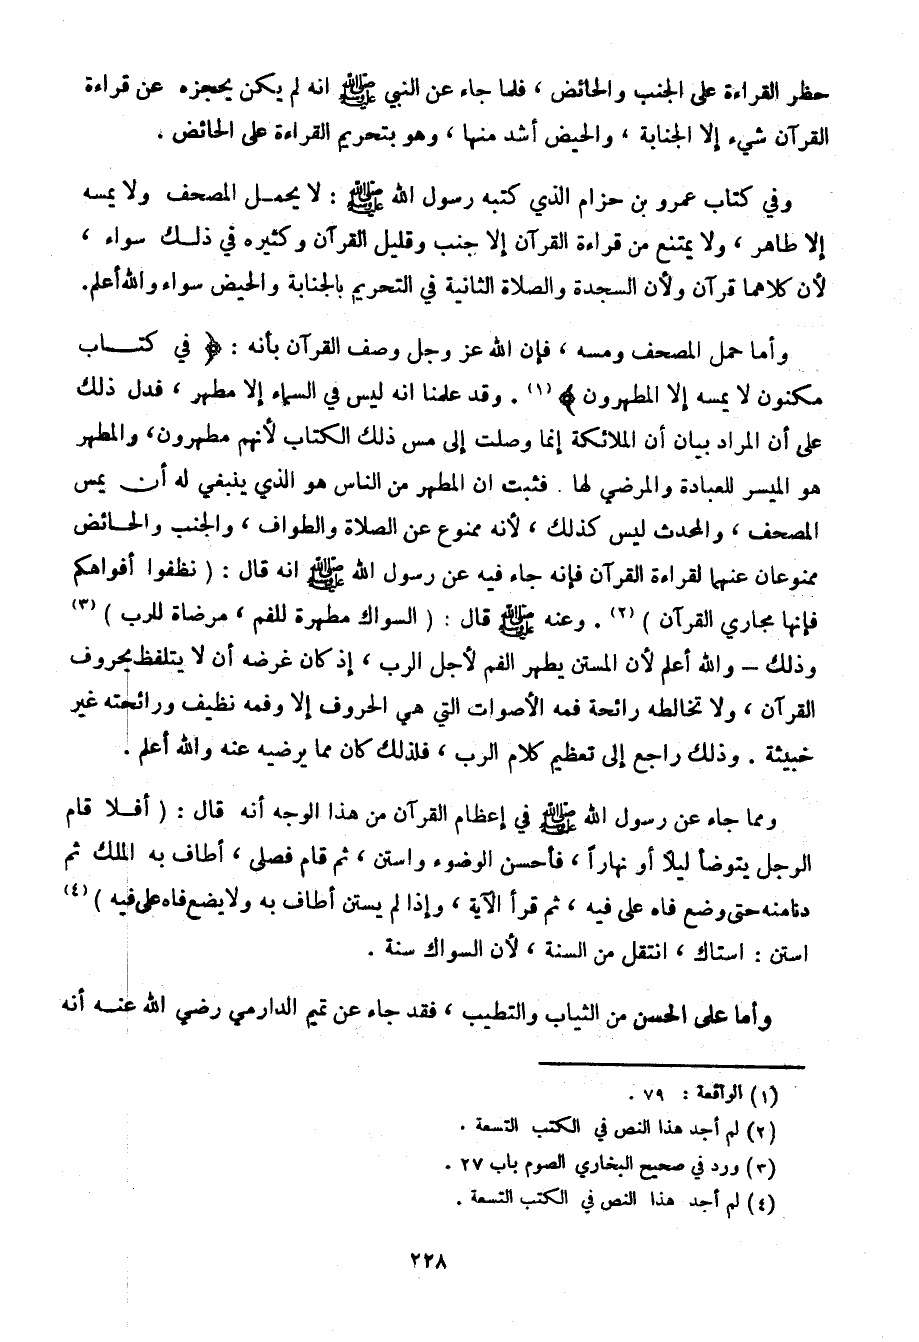 حظر القراءة على الجنب والحائض ، فلما جاء عن النبي ﷺ انه لم يكن يحجزه عن قراءة
القرآن شيء إلا الجنابة ، والحيض أشد منها ، وهو بتحريم القراءة على الحائض .
وفي كتاب عمرو بن حزام الذي كتبه رسول الله ﷺ : لا يحمل المصحف ولا يمسه
إلا طاهر ، ولا يمتنع من قراءة القرآن إلا جنب وقليل القرآن وكثيره في ذلك سواء ،
لأن كلاهما قرآن ولأن السجدة والصلاة الثانية في التحريم بالجنابة والحيض سواء والله أعلم.
وأما حمل المصحف ومسه ، فإن الله عز وجل وصف القرآن بأنه : ﴿ في كتاب
مكنون لا يمسه إلا المطهرون ﴾ (١) . وقد علمنا انه ليس في السماء إلا مطهر ، فدل ذلك
على أن المراد بيان أن الملائكة إنما وصلت إلى مس ذلك الكتاب لأنهم مطهرون، والمطهر
هو الميسر للعبادة والمرضي لها . فثبت ان المطهر من الناس هو الذي ينبغي له أن يمس
المصحف ، والمحدث ليس كذلك ، لأنه ممنوع عن الصلاة والطواف ، والجنب والحائض
ممنوعان عنهما لقراءة القرآن فإنه جاء فيه عن رسول الله ﷺ انه قال : ( نظفوا أفواهكم
فإنها مجاري القرآن ) (٢) . وعنه ﷺ قال : ( السواك مطهرة للفم ، مرضاة للرب ) (٣)
وذلك – والله أعلم لأن المستن يطهر الفم لأجل الرب ، إذ كان غرضه أن لا يتلفظ بحروف
القرآن ، ولا تخالطه رائحة فمه الأصوات التي هي الحروف إلا وفمه نظيف ورائحته غير
خبيثة . وذلك راجع إلى تعظيم كلام الرب ، فلذلك كان مما يرضيه عنه والله أعلم .
ومما جاء عن رسول الله ﷺ في إعظام القرآن من هذا الوجه أنه قال : ( أفلا قام
الرجل يتوضأ ليلاً أو نهاراً ، فأحسن الوضوء واستن ، ثم قام فصلى ، أطاف به الملك ثم
دنا منه حتى وضع فاه على فيه ، ثم قرأ الآية ، وإذا لم يستن أطاف به ولا يضع فاه على فيه ) (٤)
استن : استاك ، انتقل من السنة ، لأن السواك سنة .
وأما على الحسن من الثياب والتطيب ، فقد جاء عن تميم الدارمي رضي الله عنه أنه
(١) الواقعة : ٧٩ .
(٢) لم أجد هذا النص في الكتب التسعة .
(٣) ورد في صحيح البخاري الصوم باب ٢٧ .
(٤) لم أجد هذا النص في الكتب التسعة .
٢٢٨